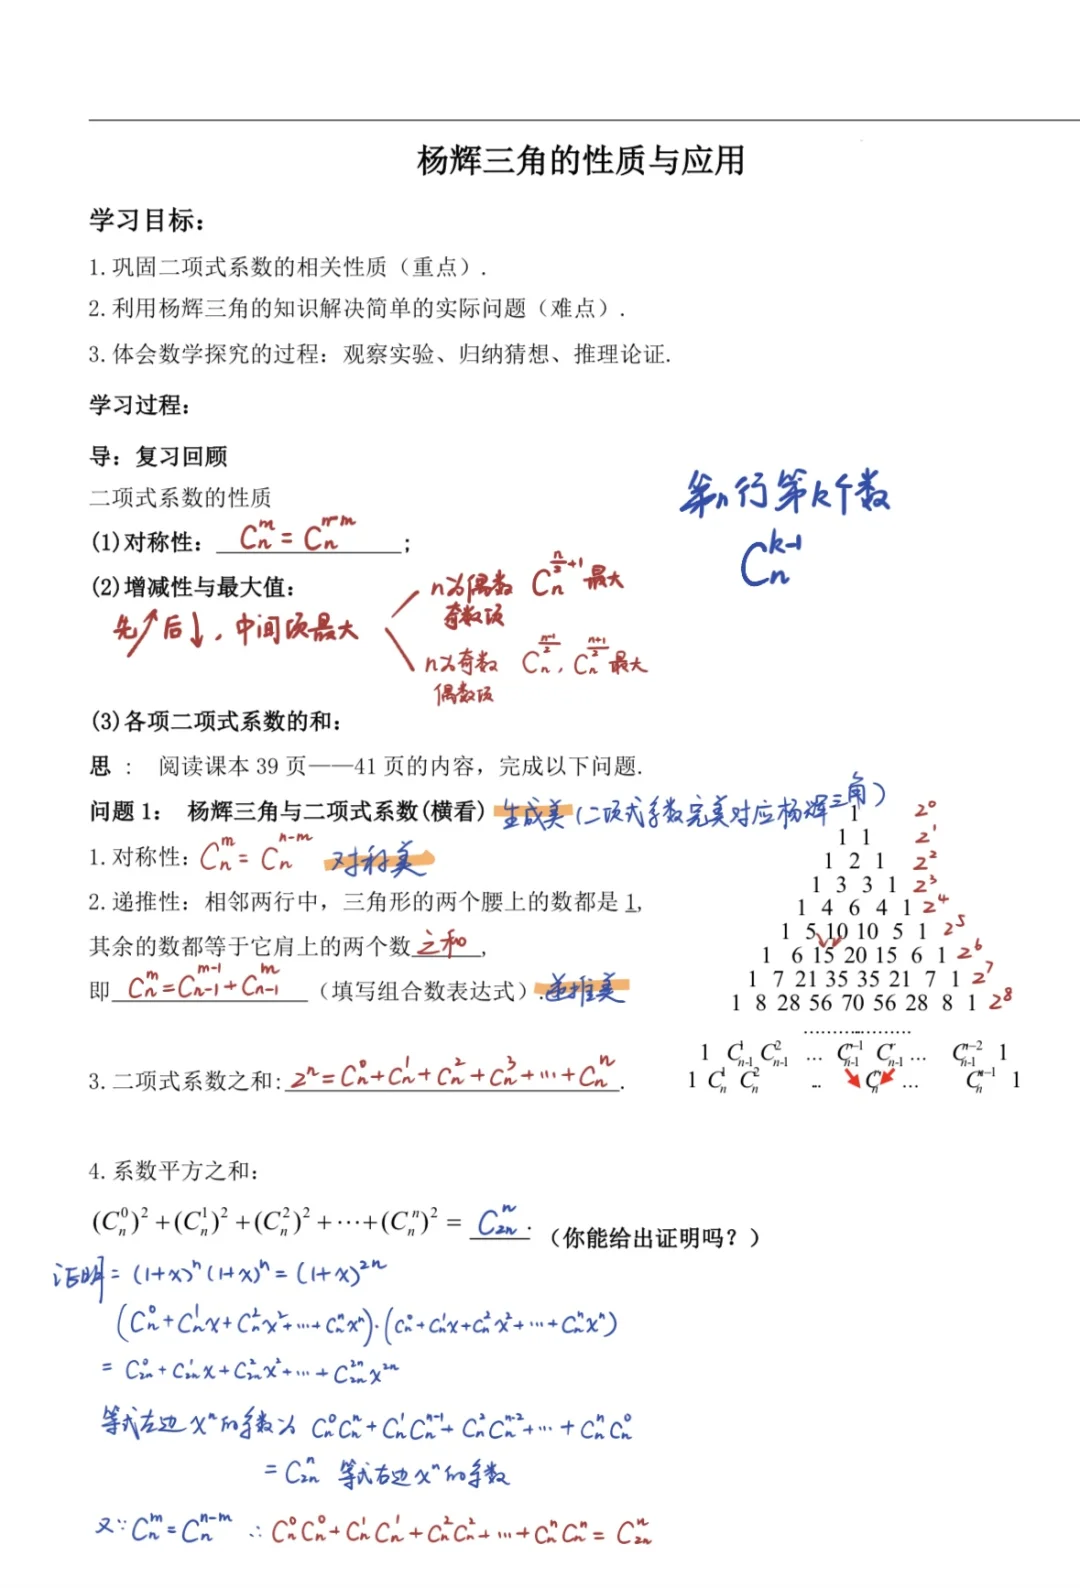 杨辉三角的性质与应用
学习目标：
1.巩固二项式系数的相关性质（重点）.
2.利用杨辉三角的知识解决简单的实际问题（难点）.
3.体会数学探究的过程：观察实验、归纳猜想、推理论证.
学习过程：
导：复习回顾
二项式系数的性质
第n行第k个数
C_n^{k-1}
(1)对称性：C_n^m = C_n^{n-m};
(2)增减性与最大值：
先↑后↓，中间项最大
n为偶数 C_n^{\frac{n}{2}+1}最大
奇数项
n为奇数 C_n^{\frac{n-1}{2}}, C_n^{\frac{n+1}{2}}最大
偶数项
(3)各项二项式系数的和：
思： 阅读课本39页——41页的内容，完成以下问题.
问题1： 杨辉三角与二项式系数(横看) 生成美（二项式系数完美对应杨辉三角）
1.对称性：C_n^m = C_n^{n-m} 对称美
2.递推性：相邻两行中，三角形的两个腰上的数都是1,
其余的数都等于它肩上的两个数之和,
即 C_n^m = C_{n-1}^{m-1} + C_{n-1}^m （填写组合数表达式）.递推美
1 2^0
1 1 2^1
1 2 1 2^2
1 3 3 1 2^3
1 4 6 4 1 2^4
1 5 10 10 5 1 2^5
1 6 15 20 15 6 1 2^6
1 7 21 35 35 21 7 1 2^7
1 8 28 56 70 56 28 8 1 2^8
…………………
1 C_{n-1}^1 C_{n-1}^2 … C_{n-1}^{r-1} C_{n-1}^r … C_{n-1}^{n-2} 1
1 C_n^1 C_n^2 … C_n^r … C_n^{n-1} 1
3.二项式系数之和: 2^n = C_n^0 + C_n^1 + C_n^2 + C_n^3 + ··· + C_n^n.
4.系数平方之和：
(C_n^0)^2 + (C_n^1)^2 + (C_n^2)^2 + ··· + (C_n^n)^2 = C_{2n}^n. （你能给出证明吗？）
证明：(1+x)^n (1+x)^n = (1+x)^{2n}
(C_n^0 + C_n^1 x + C_n^2 x^2 + ··· + C_n^n x^n)·(C_n^0 + C_n^1 x + C_n^2 x^2 + ··· + C_n^n x^n)
= C_{2n}^0 + C_{2n}^1 x + C_{2n}^2 x^2 + ··· + C_{2n}^{2n} x^{2n}
等式左边 x^n 的系数为 C_n^0 C_n^n + C_n^1 C_n^{n-1} + C_n^2 C_n^{n-2} + ··· + C_n^n C_n^0
= C_{2n}^n 等式右边 x^n 的系数
又∵ C_n^m = C_n^{n-m} ∴ C_n^0 C_n^0 + C_n^1 C_n^1 + C_n^2 C_n^2 + ··· + C_n^n C_n^n = C_{2n}^n